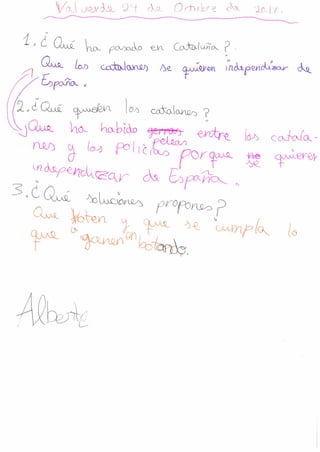 Valverde 27 de Octubre de 2017.
1. ¿Qué ha pasado en Cataluña?.
Que los catalanes se quieren independizar de
España.
2. ¿Qué quieren los catalanes?
Que ha habido peleas entre los catala-
nes y los policias porque se quieren
independizar de España.
3. ¿Qué soluciones propones?
Que boten y que se cumpla lo
que ganen en botando.
Alberto